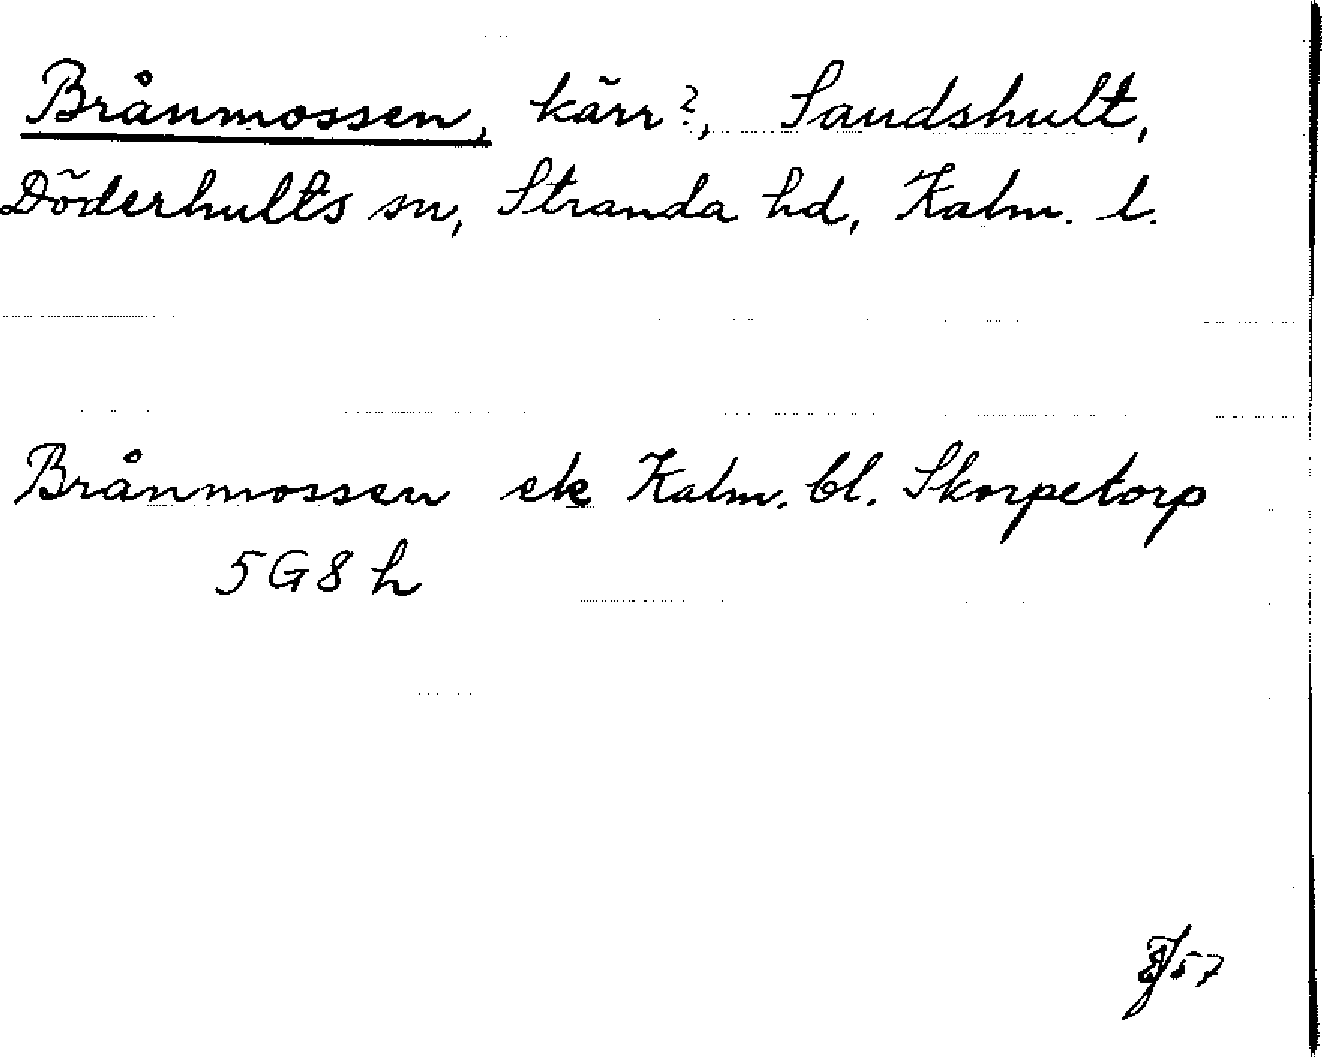 Brånmossen, kärr?, Saudshult,
Döderhults sn, Stranda hd, Kalm. l.
Brånmossen ek Kalm. bl. Skorpetorp
5G8h
/57